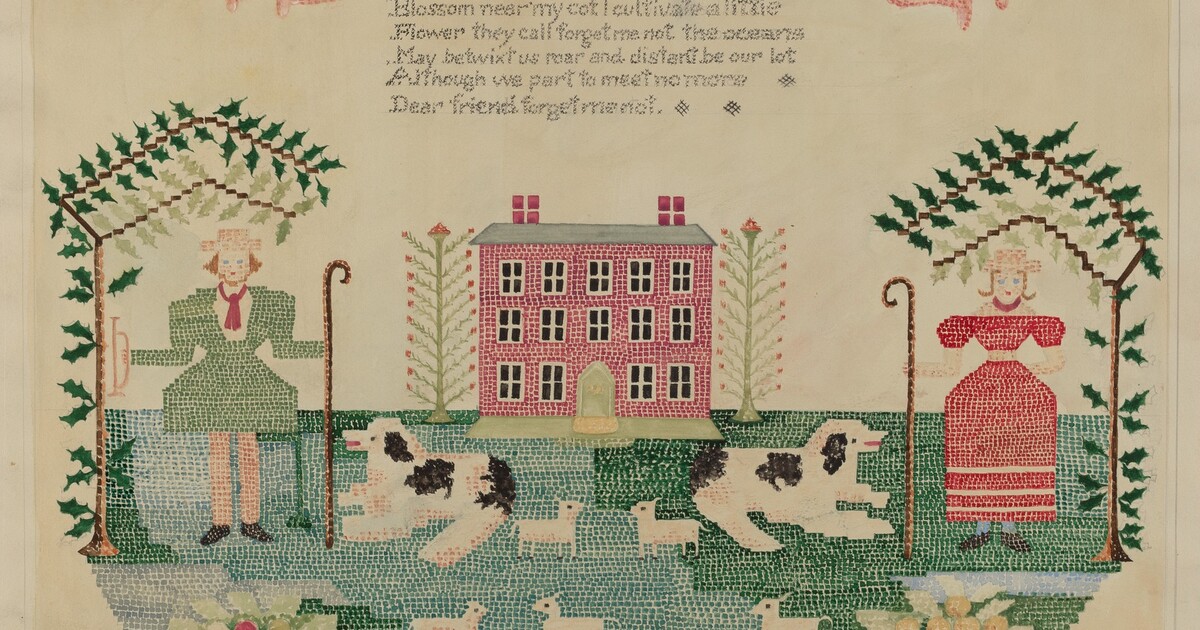 Blossom near my cot I cultivate a little
Flower they call forget me not the oceans
May betwixt us roar and distant be our lot
Although we part to meet no more
Dear friend forget me not.